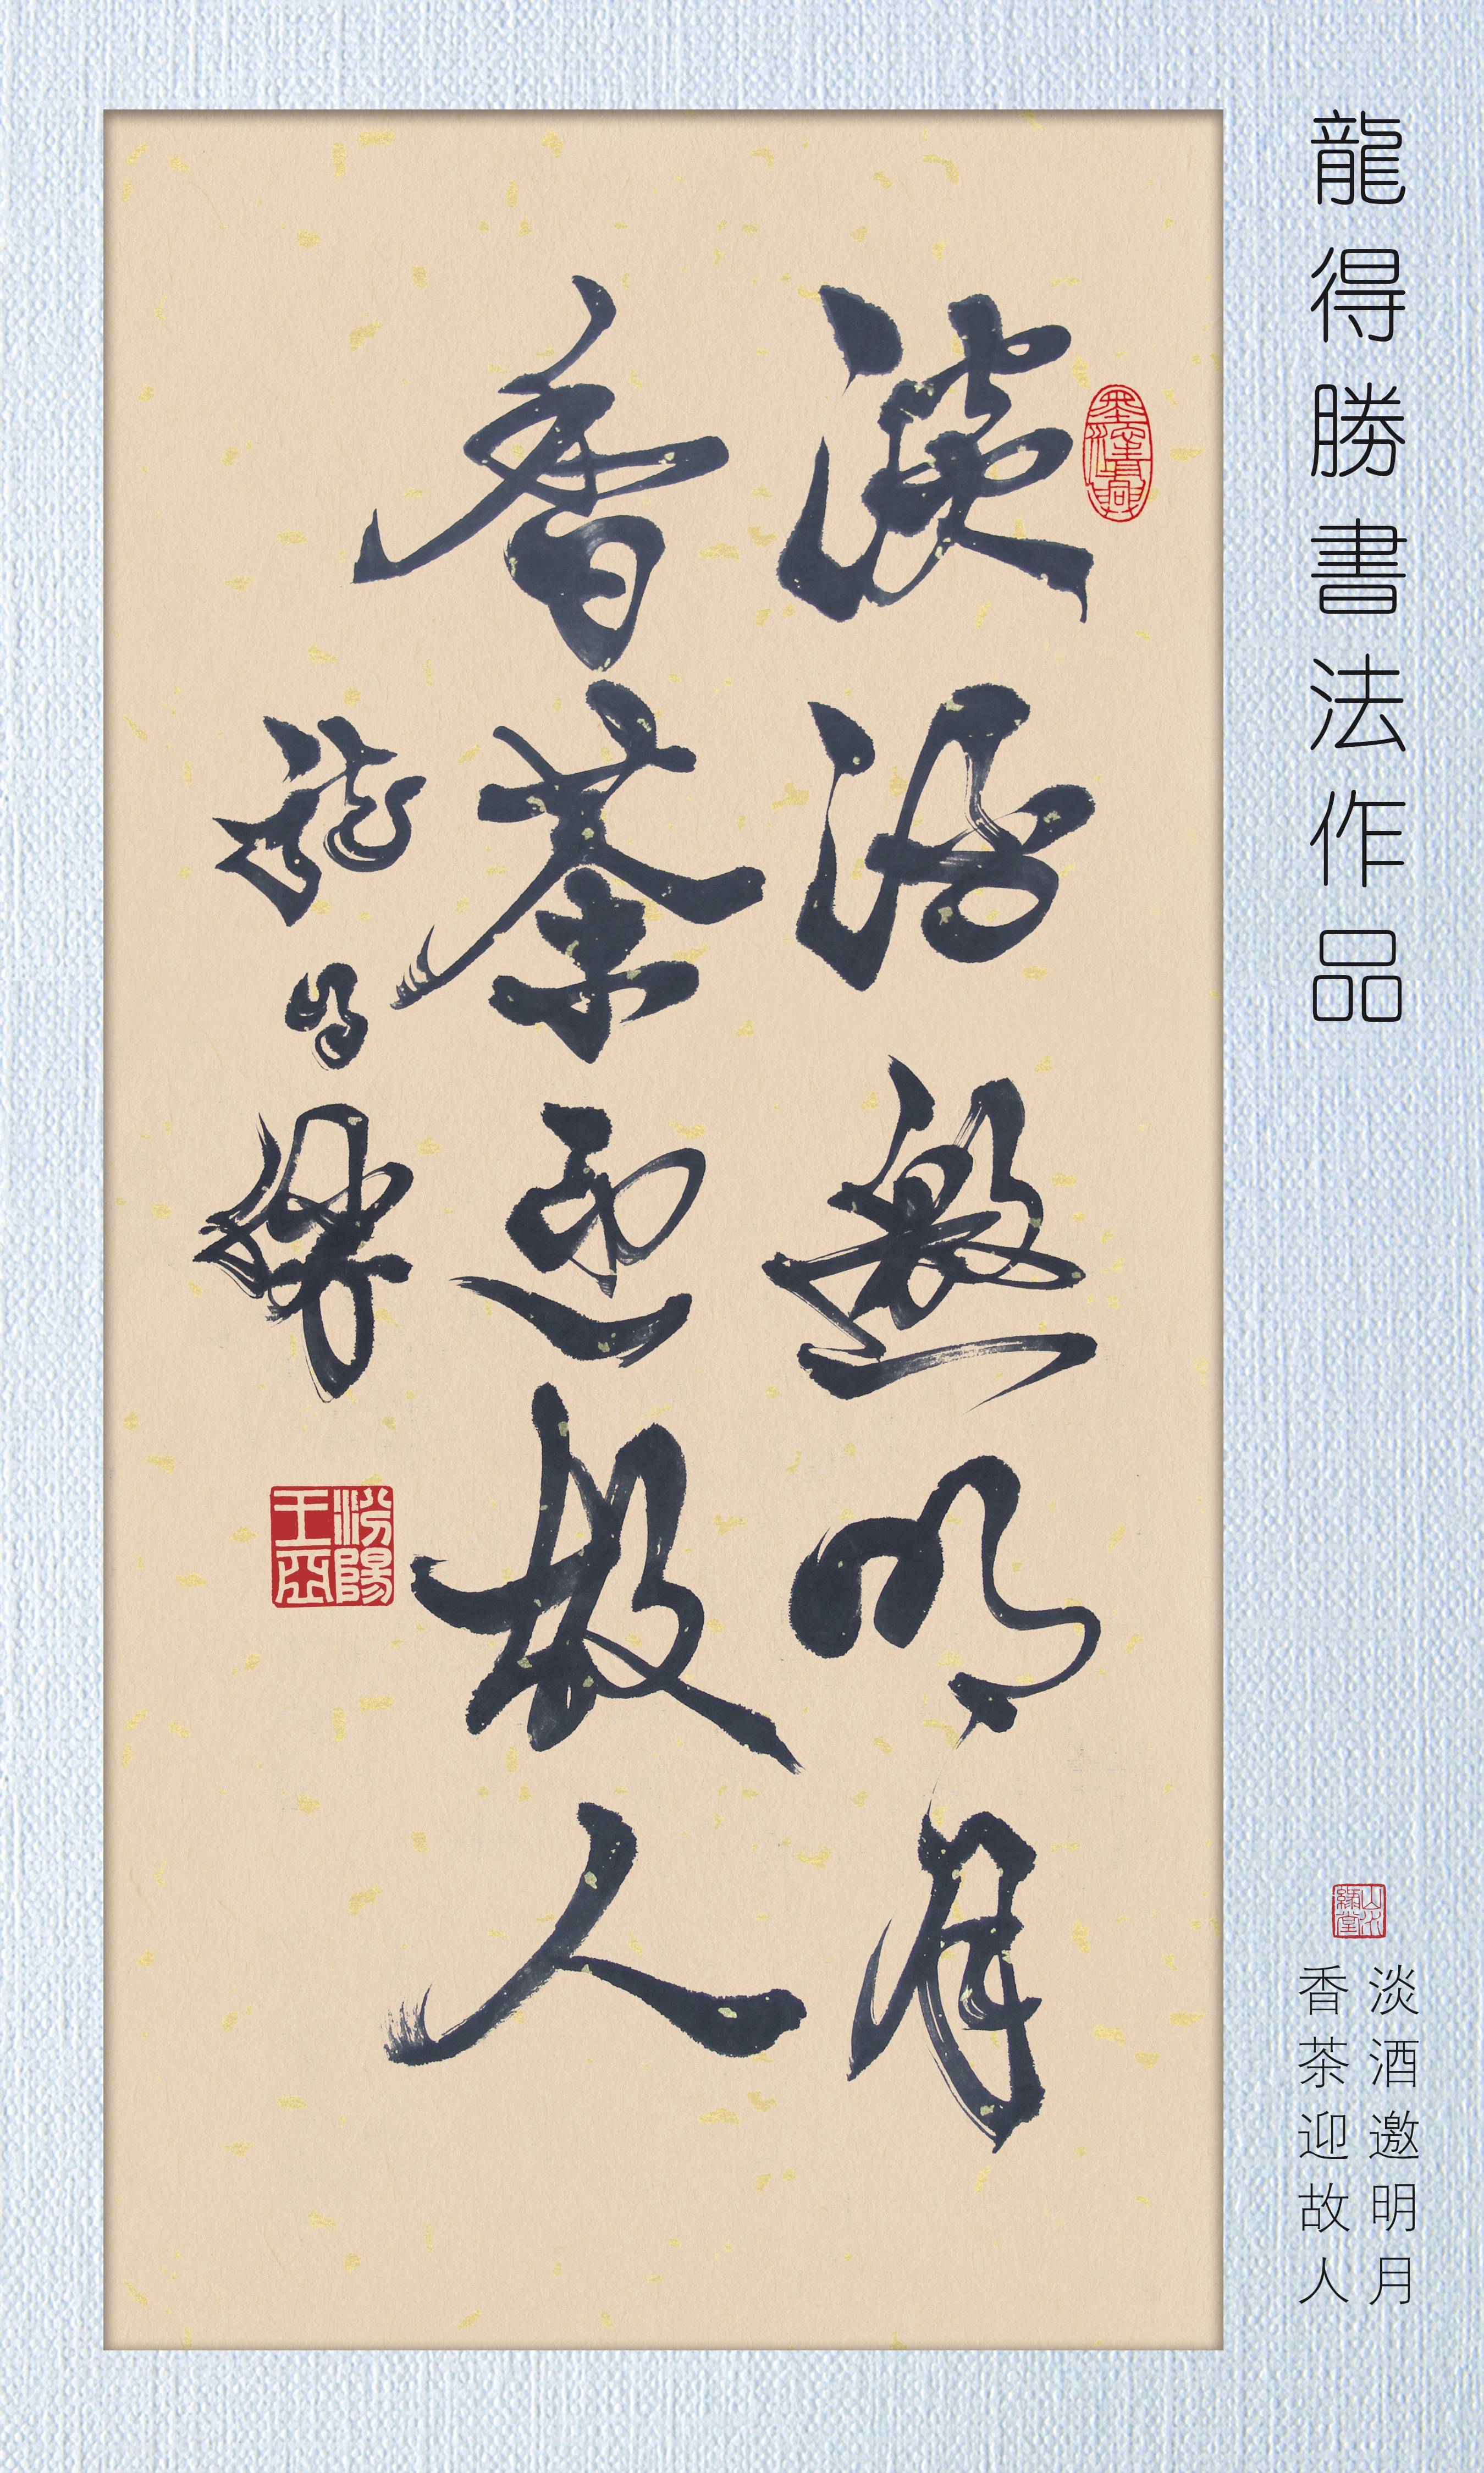 龍得勝書法作品
淡酒邀明月
香茶迎故人
淡酒邀明月
香茶迎故人
龍得勝
汾陽
王裔